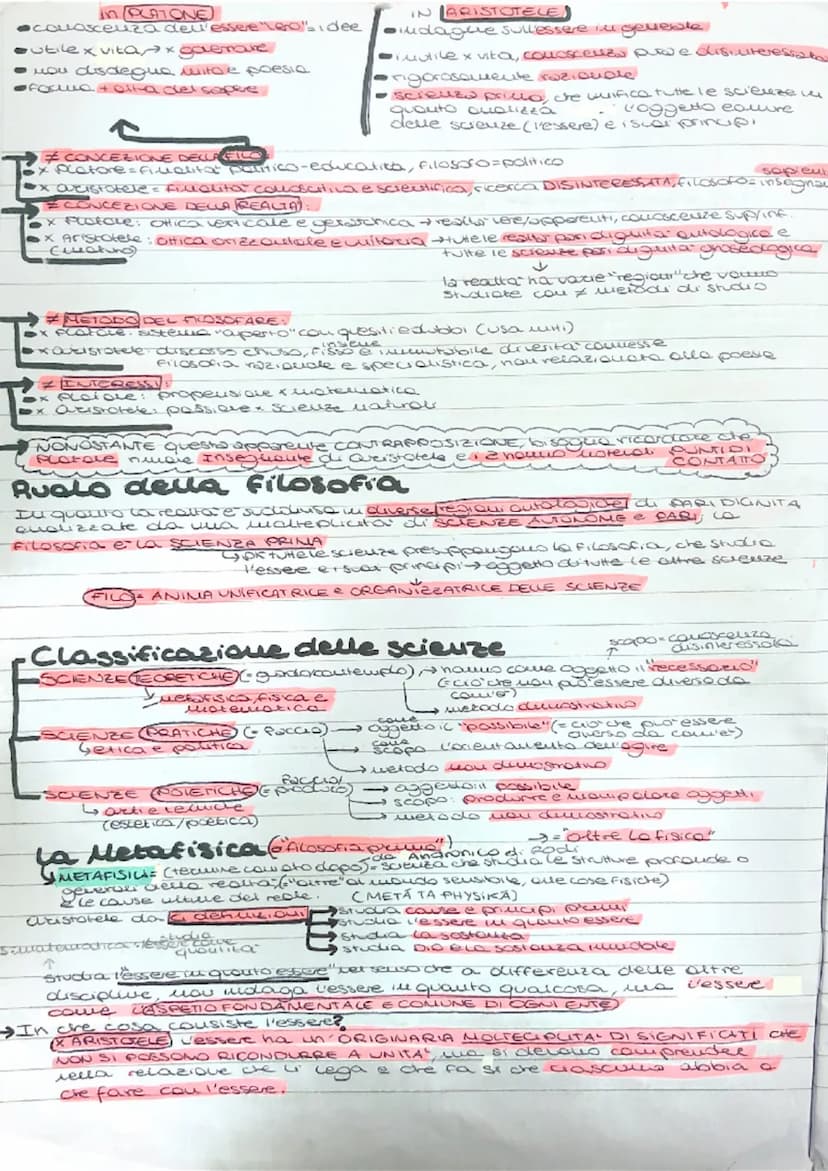 in PLATONE
• conoscenza dell'essere "vero" = idee
• utile x vita, → x governare
• non disdegna mito e poesia
• forma + alta del sapere
IN ARISTOTELE
• indagine sull'essere in generale
• inutile x vita, conoscenza pura e disinteressata
• rigorosamente razionale
• scienza prima, che unifica tutte le scienze in
quanto analizza l'oggetto comune
delle scienze (l'essere) e i suoi principi
≠ CONCEZIONE DELLA FILO:
• x Platone = finalità politico-educativa, filosofo = politico
• x aristotele = finalità conoscitiva e scientifica, ricerca DISINTERESSATA, filosofo = insegnan
≠ CONCEZIONE DELLA REALTÀ:
• x Platone: ottica verticale e gerarchica → realtà vere/apparenti, conoscenze sup/inf.
• x Aristotele: ottica orizzontale e unitaria → tutte le realtà pari dignità ontologica e
tutte le scienze pari dignità gnoseologica
la realtà ha varie "regioni" che vanno
studiate con ≠ metodi di studio
≠ METODO DEL FILOSOFARE:
• x Platone: sistema "aperto" con quesiti e dubbi (usa miti)
insieme
• x aristotele: discorso chiuso, fisso e immutabile di verità connesse
filosofia razionale e specialistica, non relazionata alla poesia
≠ INTERESSI:
• x Platone: propensione x matematica
• x aristotele: passione x scienze naturali
→ NONOSTANTE questa apparente CONTRAPPOSIZIONE, bisogna ricordare che
Platone rimane Insegnante di aristotele e i 2 hanno notevoli PUNTI DI
CONTATTO
Ruolo della filosofia
In quanto la realtà è suddivisa in diverse regioni ontologiche di PARI DIGNITÀ
analizzate da una molteplicità di SCIENZE AUTONOME e PARI, la
filosofia è la SCIENZA PRIMA
tutte le scienze presuppongono la filosofia, che studia
l'essere e i suoi principi → oggetto di tutte le altre scienze
FILO = ANIMA UNIFICATRICE e ORGANIZZATRICE DELLE SCIENZE
Classificazione delle scienze
scopo = conoscenza
disinteressata
SCIENZE TEORETICHE (= guardo/contemplo) → hanno come oggetto il "necessario"
(= ciò che non può essere diverso da
com'è)
→ metafisica, fisica e
matematica
→ metodo dimostrativo
SCIENZE PRATICHE (= faccio) → come oggetto il "possibile" (= ciò che può essere
diverso da com'è)
→ etica e politica
→ come scopo l'orientamento dell'agire
→ metodo non dimostrativo
SCIENZE POIETICHE (= faccio/produco) → oggetto: il possibile
→ scopo: produrre e manipolare oggetti
→ arti e tecniche
(estetica/poetica)
→ metodo non dimostrativo
La Metafisica (o "filosofia prima")
→ = "oltre la fisica"
da Andronico di Rodi
METAFISICA = (termine coniato dopo) = scienza che studia le strutture profonde o
generali della realtà, (= "oltre" al mondo sensibile, alle cose fisiche)
e le cause ultime del reale. (METÀ TA PHYSIKÀ)
aristotele dà 4 definizioni
→ studia cause e principi primi
→ studia l'essere in quanto essere
→ studia la sostanza
→ studia DIO e la sostanza immobile
studia l'essere come
quantità
studia l'"essere in quanto essere" nel senso che a differenza delle altre
discipline, non indaga l'essere in quanto qualcosa, ma l'essere
come L'ASPETTO FONDAMENTALE E COMUNE DI OGNI ENTE
→ In che cosa consiste l'essere?
x ARISTOTELE L'essere ha un'ORIGINARIA MOLTECIPLITÀ DI SIGNIFICATI CHE
NON SI POSSONO RICONDURRE A UNITÀ, ma si devono comprendere
nella relazione che li lega e che fa sì che ciascuno abbia a
che fare con l'essere.